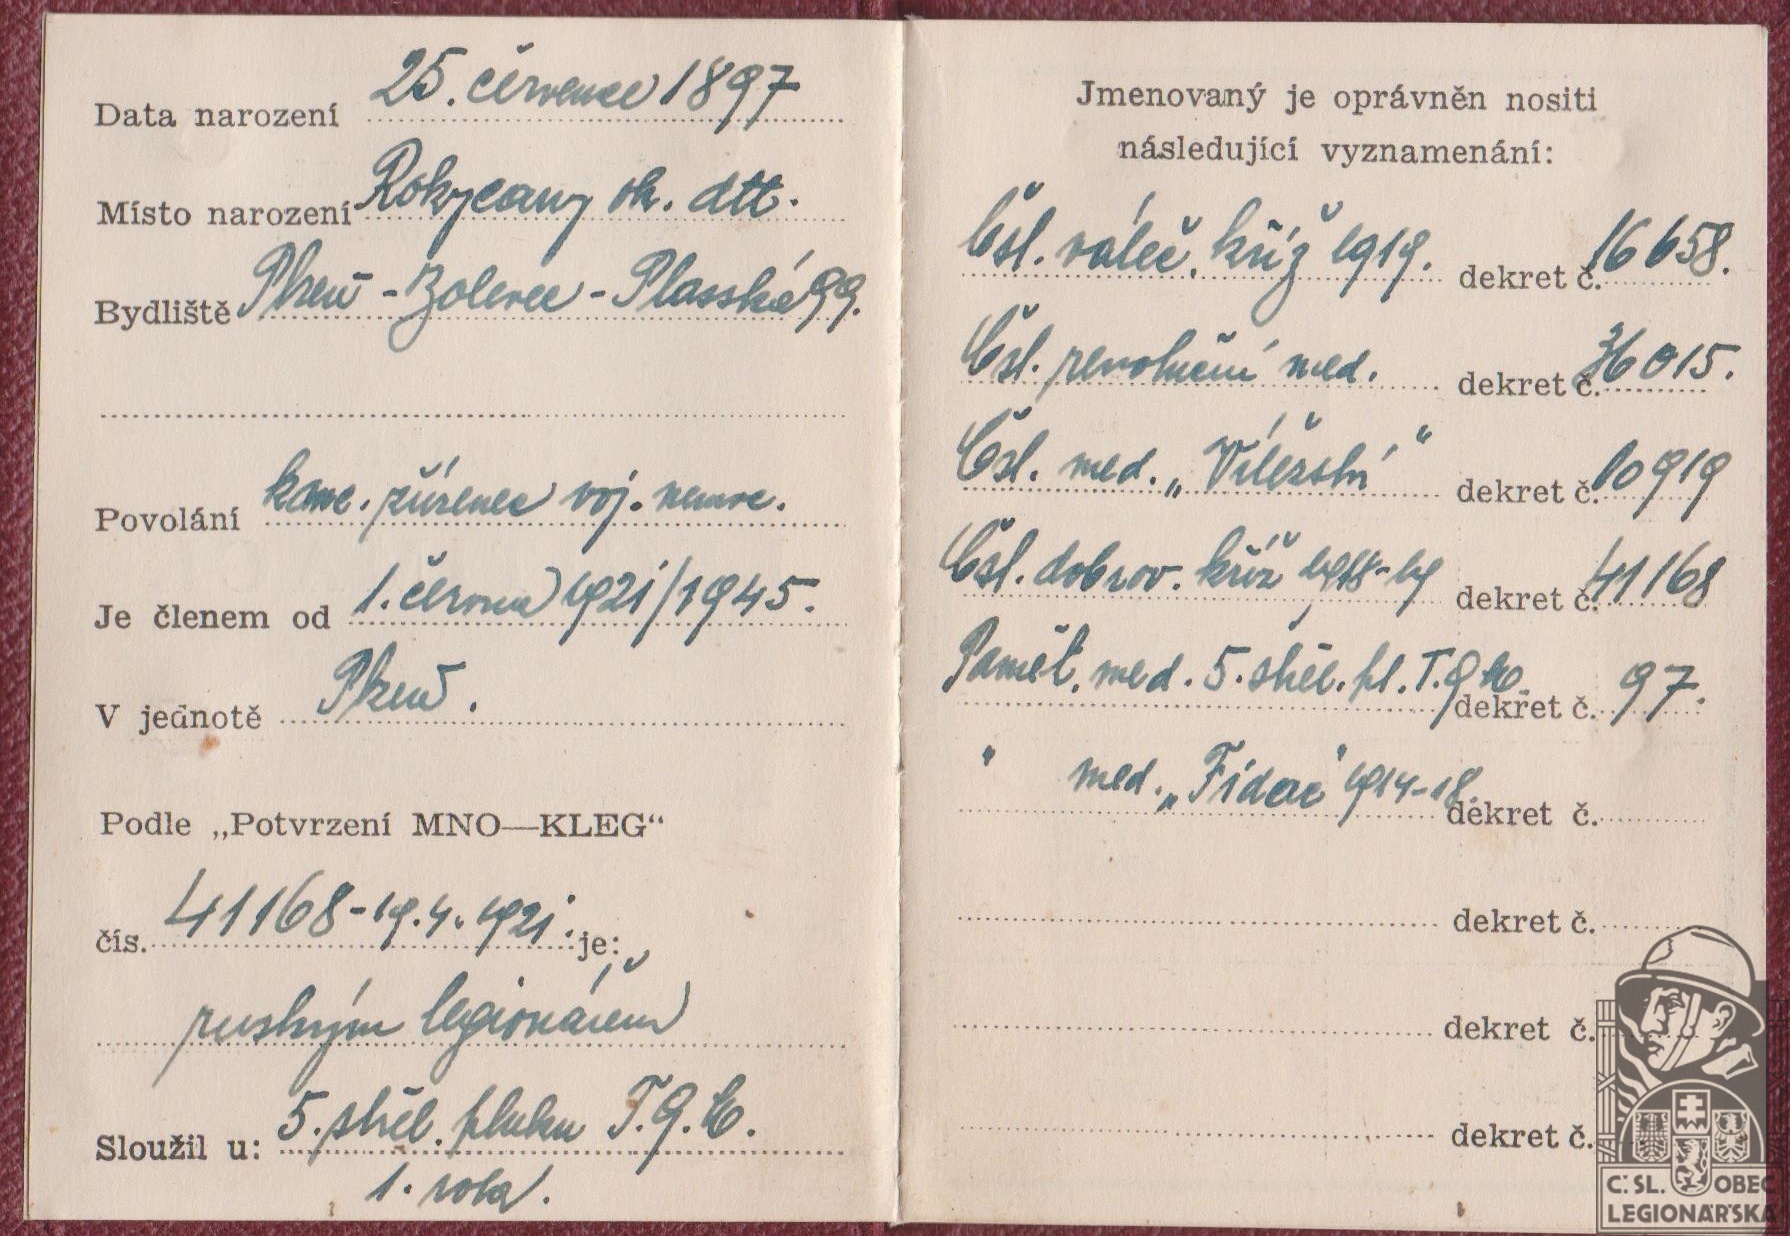 Data narození 25. července 1897
Místo narození Rokycany ok. dtt.
Bydliště Plzeň - Bolevec - Plasská 99.
Povolání kanc. zřízenec voj. nemoc.
Je členem od 1. června 1921/1945.
V jednotě Plzeň.
Podle „Potvrzení MNO—KLEG“
čís. 41168-19.4.1921. je:
ruským legionářem
Sloužil u: 5. střel. pluku T.G.M.
1. rota.
Jmenovaný je oprávněn nositi
následující vyznamenání:
Čsl. váleč. kříž 1919. dekret č. 16658.
Čsl. revoluční med. dekret č. 36015.
Čsl. med. „Vítězství“ dekret č. 10919
Čsl. dobrov. kříž 1918-19 dekret č. 41168
Pamět. med. 5. střel. pl. T.G.M. dekret č. 97.
" med. „Fidac“ 1914-18. dekret č.
dekret č.
dekret č.
dekret č.
Č. SL. OBEC
LEGIONÁŘSKÁ